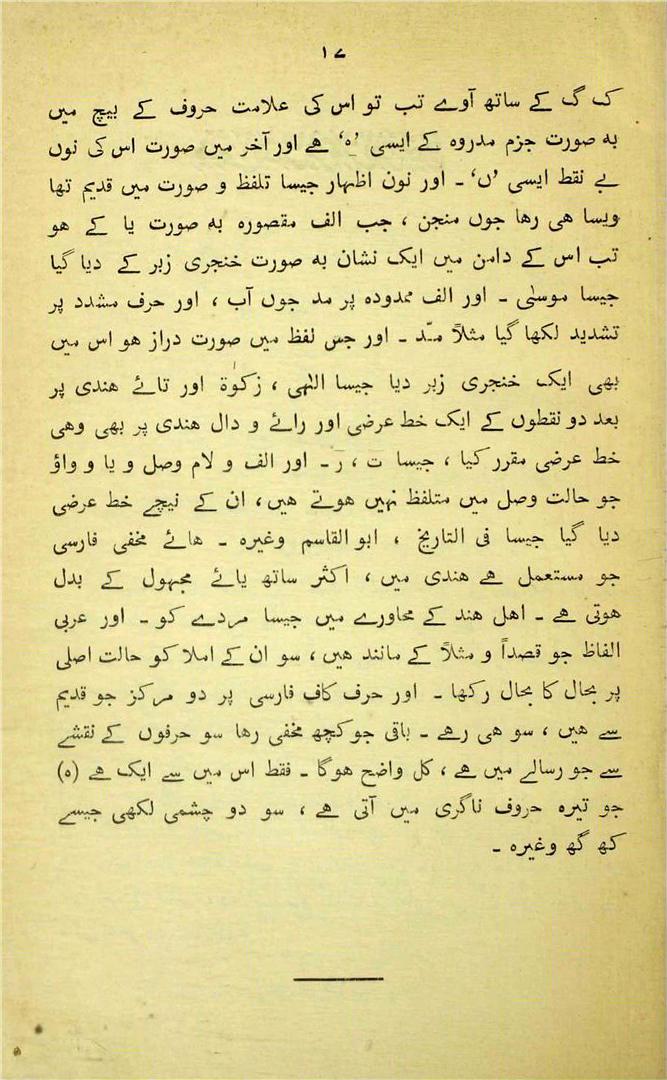 ۱۷
ک گ کے ساتھ آوے تب تو اس کی علامت حروف کے بیچ میں
بہ صورت جزم مدروہ کے ایسی ’ہ‘ ہے اور آخر میں صورت اس کی نوں
بے نقط ایسی ’ں‘ ۔ اور نون اظہار جیسا تلفظ و صورت میں قدیم تھا
ویسا ھی رھا جوں منجن ، جب الف مقصورہ بہ صورت یا کے ھو
تب اس کے دامن میں ایک نشان بہ صورت خنجری زبر کے دیا گیا
جیسا موسیٰ ۔ اور الف ممدودہ پر مد جوں آب ، اور حرف مشدد پر
تشدید لکھا گیا مثلاً مدّ ۔ اور جس لفظ میں صورت دراز ھو اس میں
بھی ایک خنجری زبر دیا جیسا الٰہی ، زکوٰة اور تائے ھندی پر
بعد دو نقطوں کے ایک خط عرضی اور رائے و دال ھندی پر بھی وھی
خط عرضی مقرر کیا ، جیسا ت ، ر ۔ اور الف و لام وصل و یا و واؤ
جو حالت وصل میں متلفظ نہیں ھوتے ھیں ، ان کے نیچے خط عرضی
دیا گیا جیسا فی التاریخ ، ابو القاسم وغیرہ ۔ ھائے مخفی فارسی
جو مستعمل ھے ھندی میں ، اکثر ساتھ یائے مجہول کے بدل
ھوتی ھے ۔ اھل ھند کے محاورے میں جیسا مردے کو ۔ اور عربی
الفاظ جو قصداً و مثلاً کے مانند ھیں ، سو ان کے املا کو حالت اصلی
پر بحال کا بحال رکھا ۔ اور حرف کاف فارسی پر دو مرکز جو قدیم
سے ھیں ، سو ھی رھے ۔ باقی جو کچھ مخفی رھا سو حرفوں کے نقشے
سے جو رسالے میں ھے ، کل واضح ھوگا ۔ فقط اس میں سے ایک ھے (ہ)
جو تیرہ حروف ناگری میں آتی ھے ، سو دو چشمی لکھی جیسے
کھ گھ وغیرہ ۔